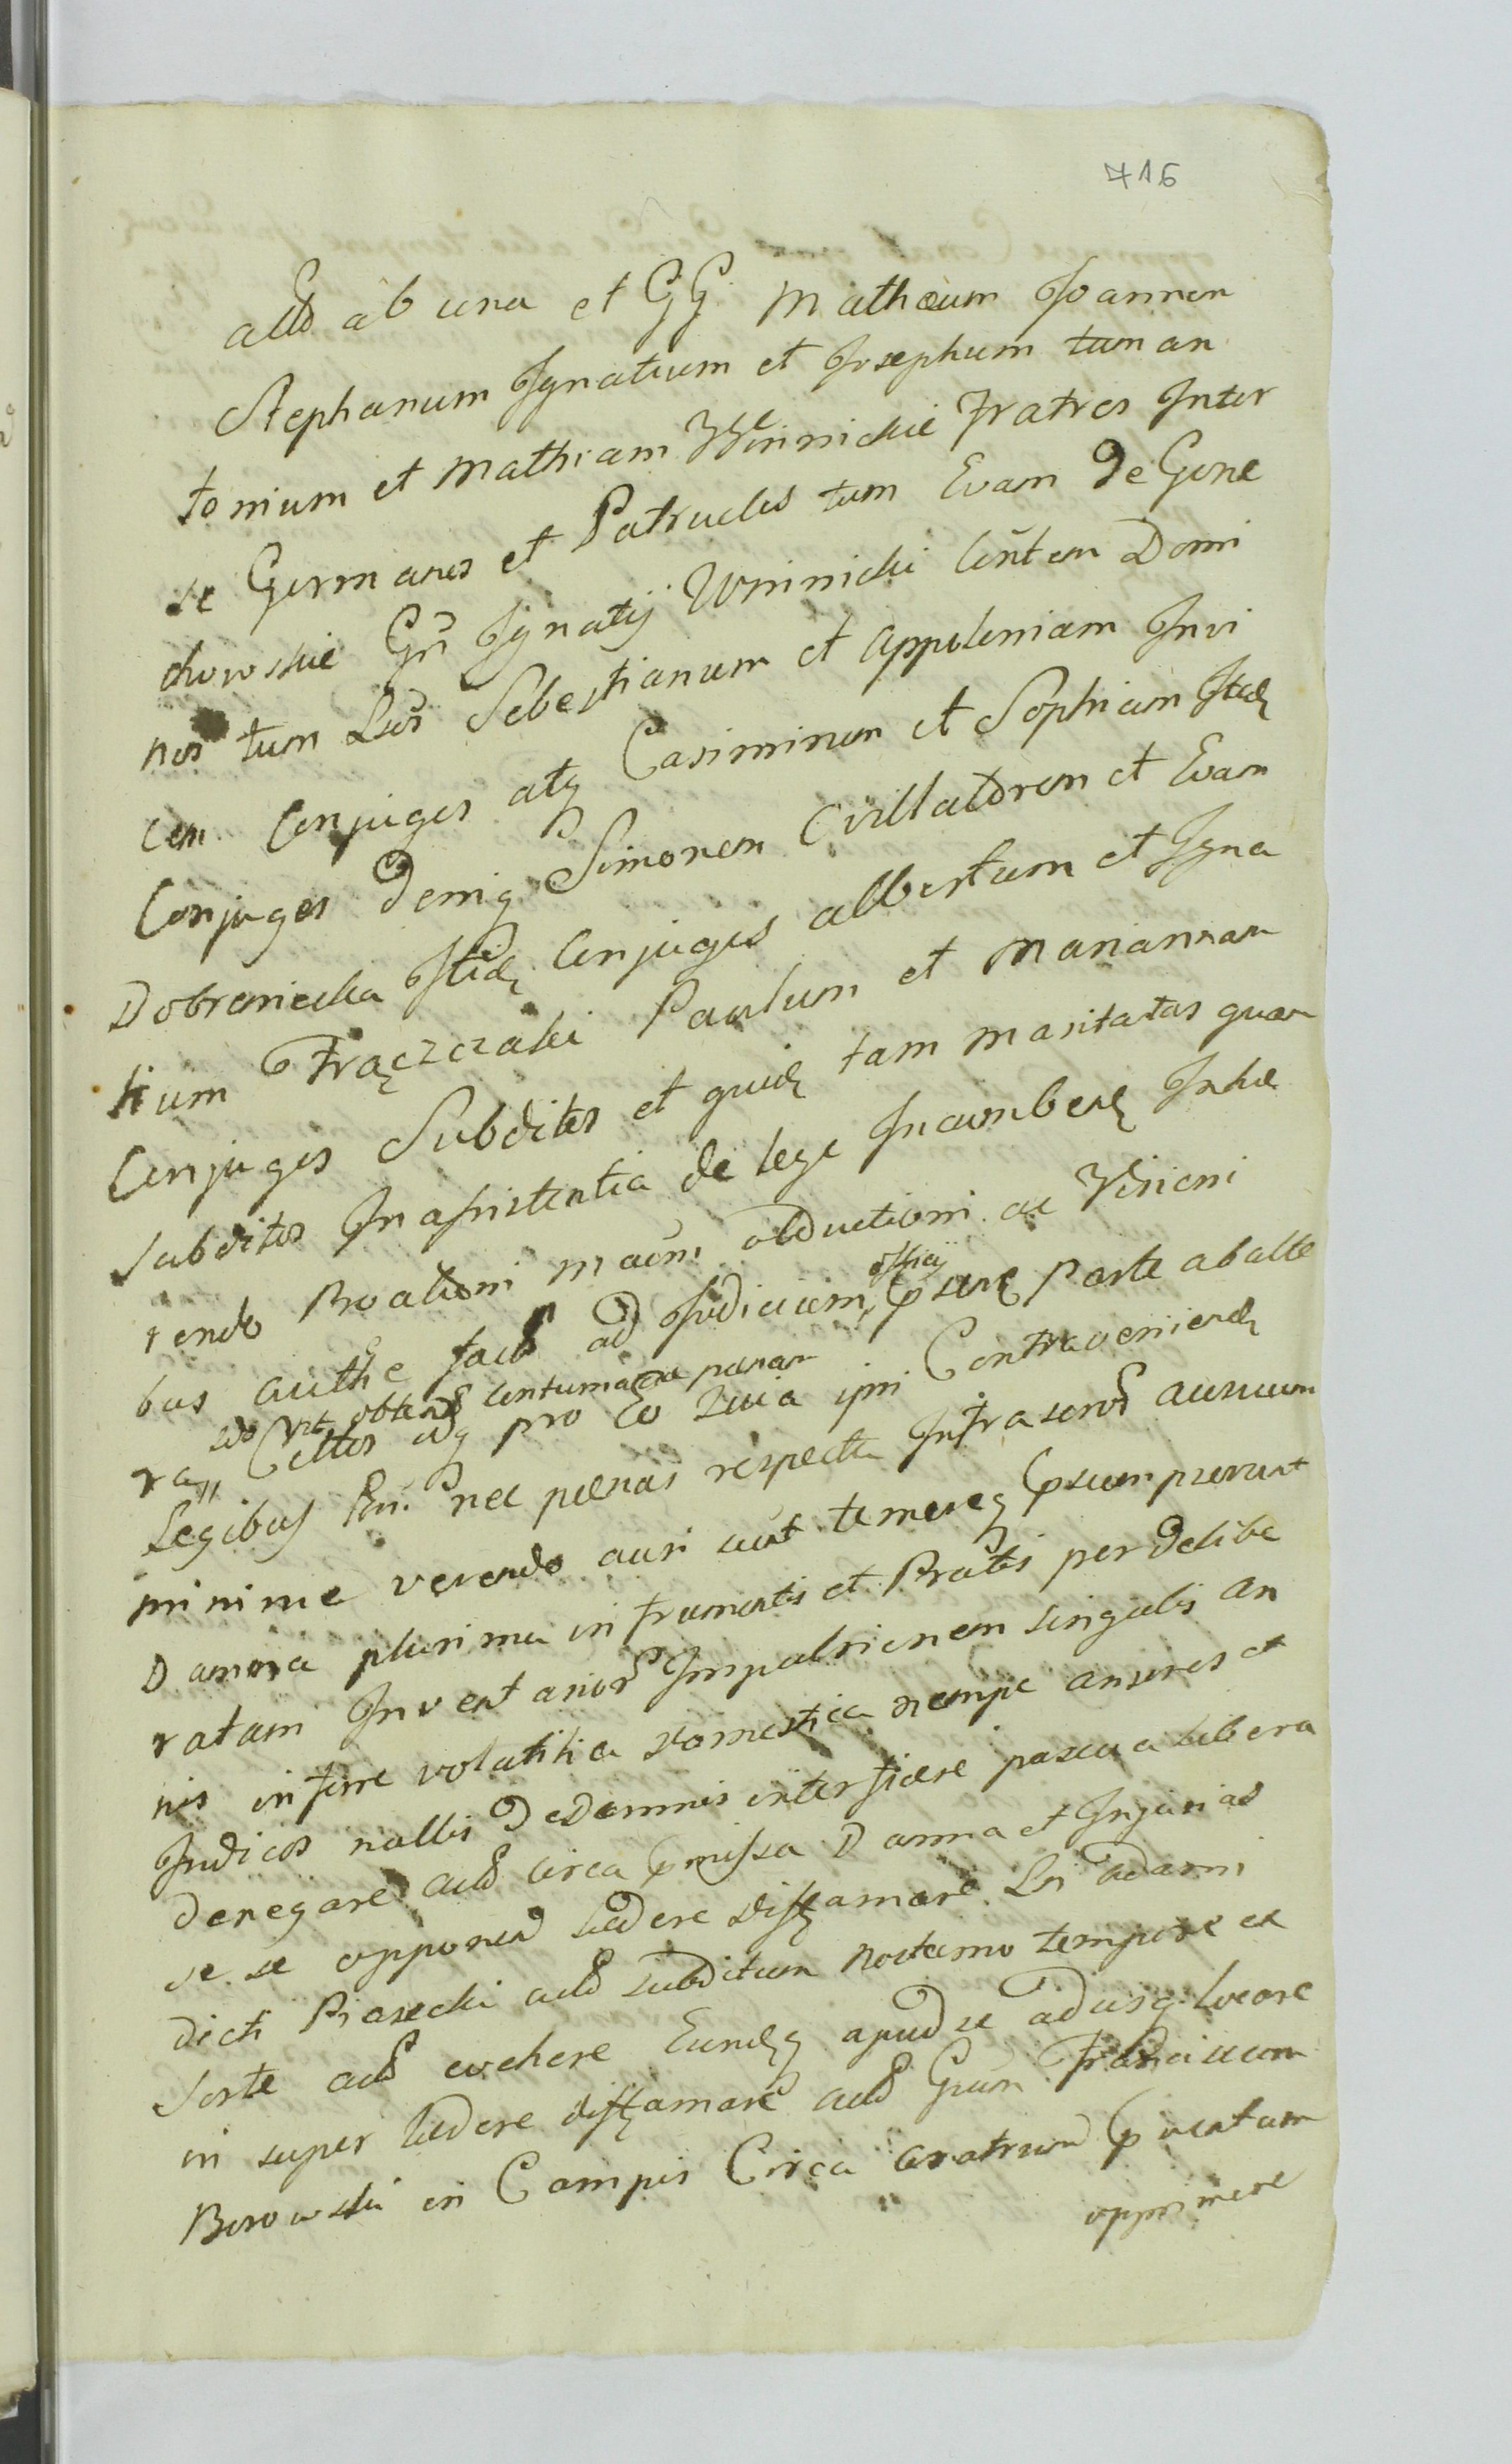 716
actor ab una et GG Mathæum Joannem
Stephanum Ignatium et Josephum tum an
tonium et Mathiam Winnickie Fratres Inter
se Germanos et Patrueles tum Evam de Gone
chowskie Gn Ignatij Winnicki Contem Domi
nos tum Lab Sebestianum et Appoloniam Invi
cem Conjuges atq Casimirum et Sophiam Itid
Conjuges Deniq Simonem Civillatorem et Evam
Dobroniecka Itid Conjuges albertum et Igna
tium Frączczaki Paulum et Mariannam
Conjuges Subditos et quid tam Maritatas quam
Subditos In assistentia de lege Incumben Inhæ
rendo Protioni mani obductioni ac Visioni
bus authe factis ad Judicium officij psure Parte ab alte
sdo Vzt obtend contumacia pænam
ra,, Cittos idq pro Eo Quia ipsi Contraveniend
Legibus Pnı nec pænas respectu Infrascrod ausuum
minime verendo ausi sunt temereq psumpserunt
Damna plurima in frumentis et Pratis per delibe
ratam Inventarior Impulsionem singulis an
nis inferre volatitia domestica nempe anseres et
Indicos nullis Dedamnis interficere pascua libera
Denegare acto circa pmissa Damna et Injurias
se se opponend lædere diffamare Ln Adami
dicti Piasecki acto subditum nocturno tempore ex
Sorte acto evehere Eundq apud se adusq locare
in super lædere diffamare acto Gnum Franciscum
Borowski in Campis Circa aratrum pcatum
opprimere